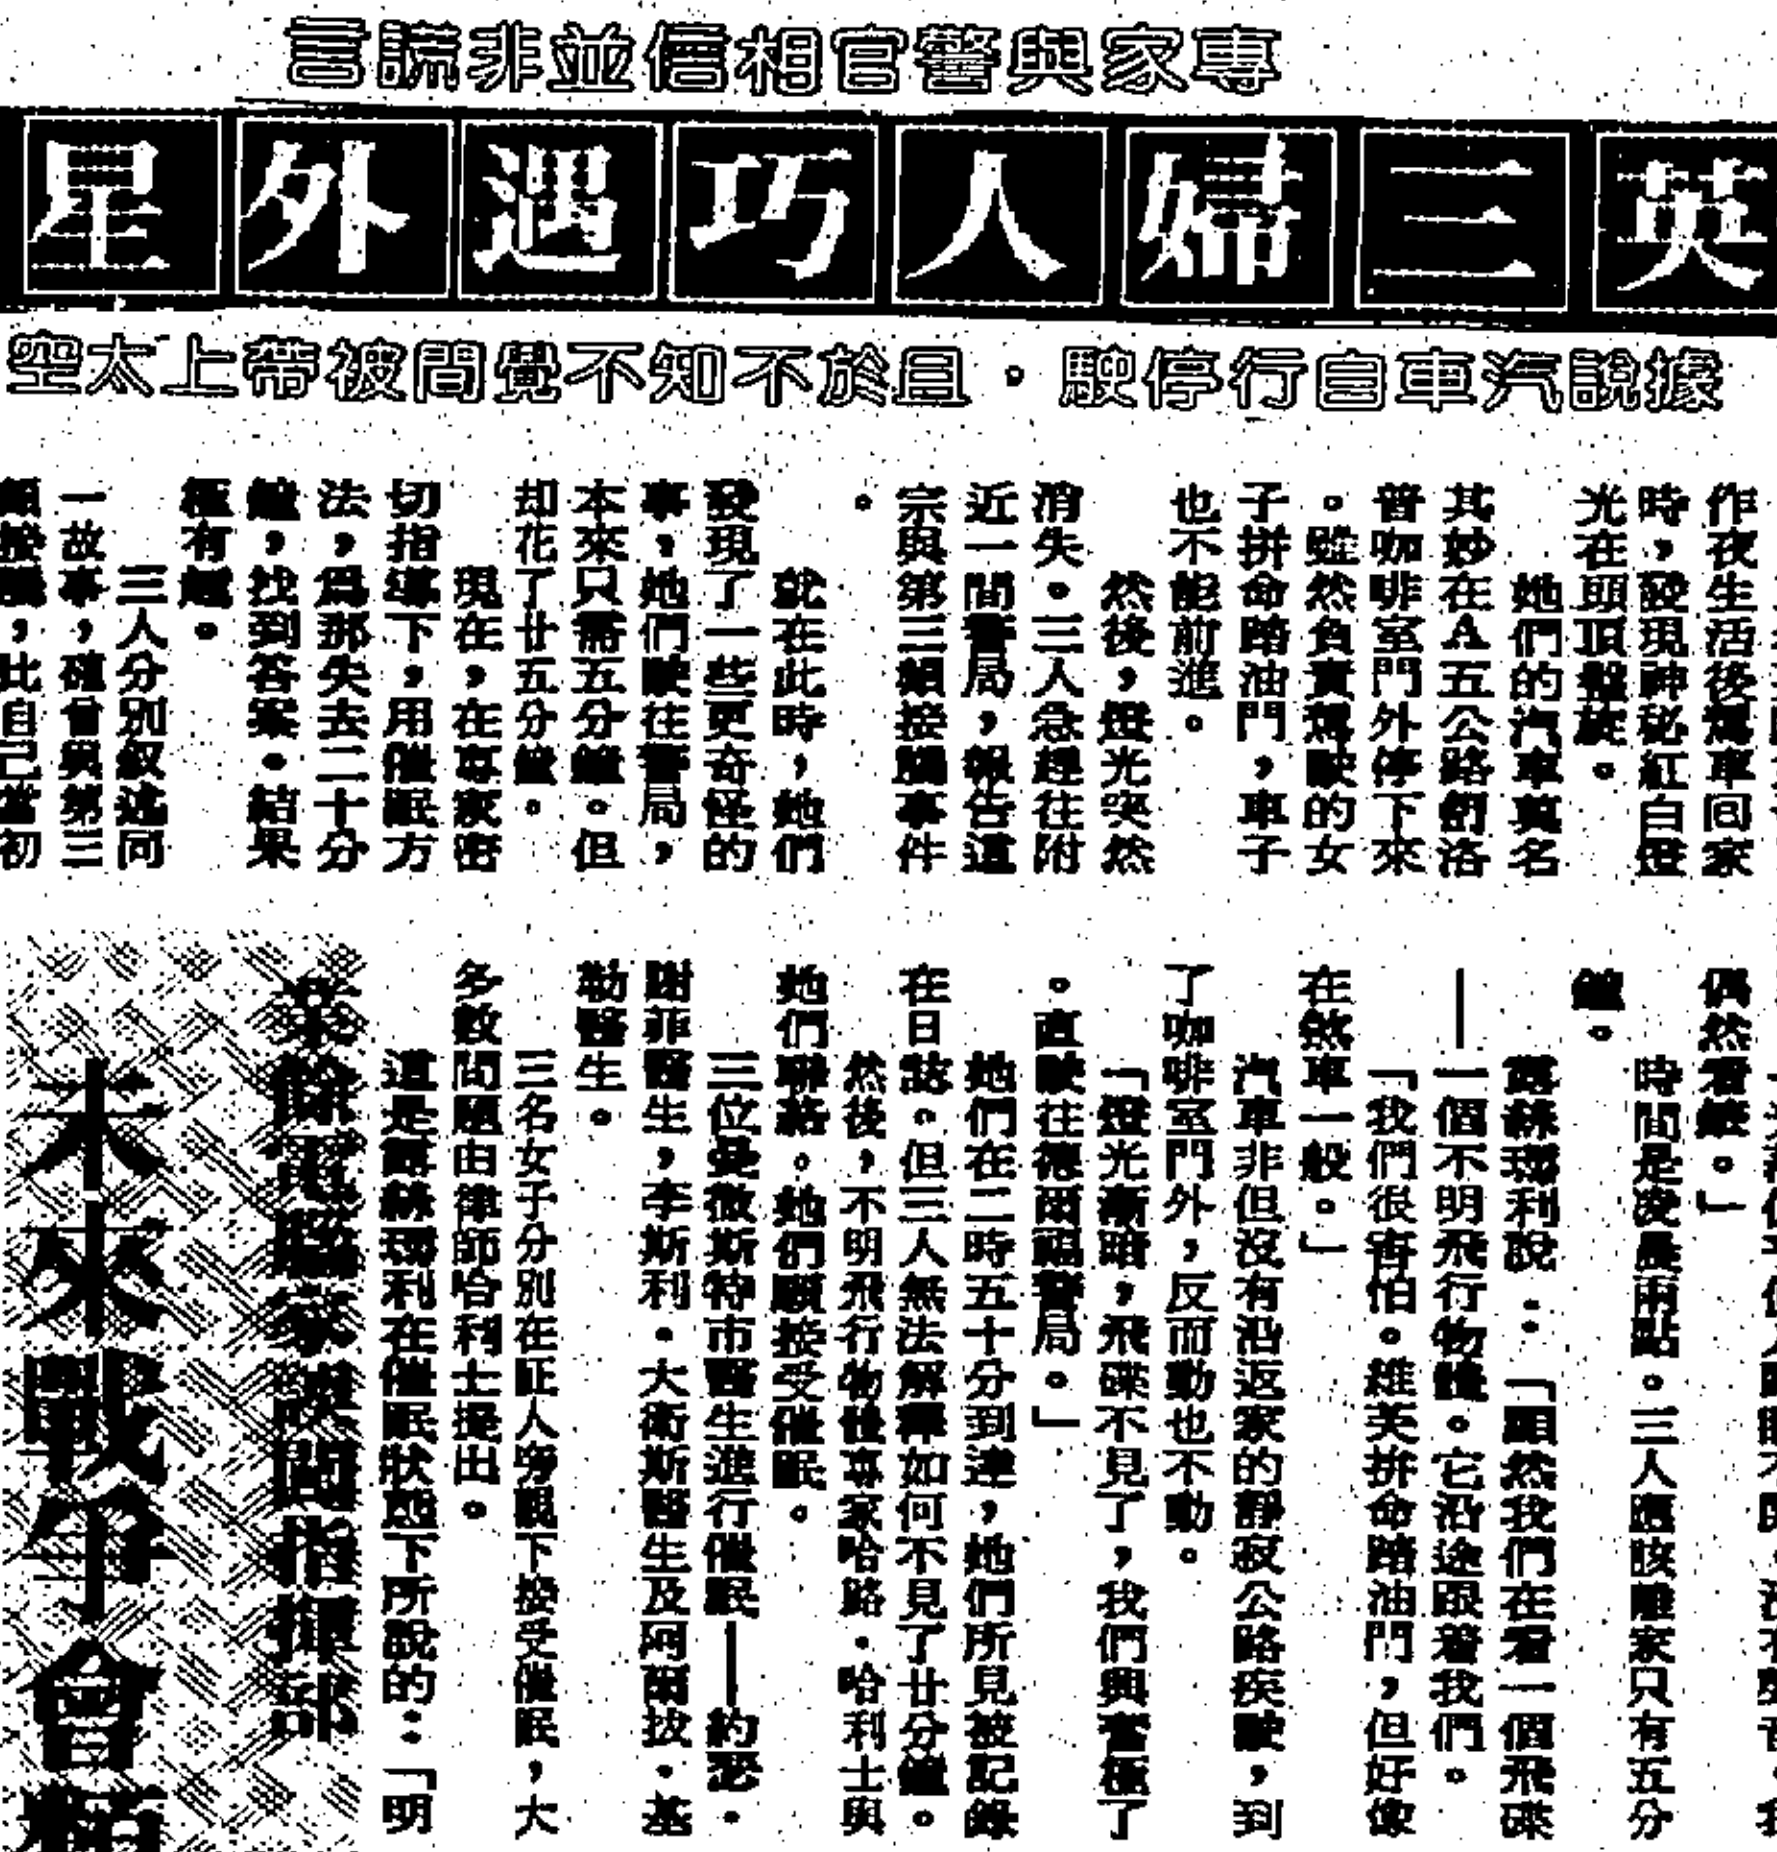 專家與警官相信並非謊言
英三婦人巧遇外星
據說汽車自行停駛・且於不知不覺間被帶上太空
作夜生活後駕車回家
時，發現神秘紅白燈
光在頭頂盤旋。
她們的汽車莫名
其妙在A五公路舒洛
普咖啡室門外停下來
。雖然負責駕駛的女
子拼命踏油門，車子
也不能前進。
然後，燈光突然
消失。三人急趕往附
近一間警局，報告這
宗與第三類接觸事件
。
就在此時，她們
發現了一些更奇怪的
事，她們駛往警局，
本來只需五分鐘。但
却花了廿五分鐘。
現在，在專家密
切指導下，用催眠方
法，爲那失去二十分
鐘，找到答案。結果
極有趣。
三人分別敘述同
一故事，確曾與第三
類接觸，比自己當初
偶然看錶。」
時間是凌晨兩點。三人應該離家只有五分
鐘。
露絲瑪利說：「顯然我們在看一個飛碟
——一個不明飛行物體。它沿途跟着我們。
「我們很害怕。維美拼命踏油門，但好像
在煞車一般。」
汽車非但沒有沿返家的靜寂公路疾駛，到
了咖啡室門外，反而動也不動。
「燈光漸暗，飛碟不見了，我們興奮極了
。直駛往德爾福警局。」
她們在二時五十分到達，她們所見被記錄
在日誌。但三人無法解釋如何不見了廿分鐘。
然後，不明飛行物體專家哈路・哈利士與
她們聯絡。她們願接受催眠。
三位曼徹斯特市醫生進行催眠——約瑟・
謝菲醫生，李斯利・大衛斯醫生及阿爾拔・基
勒醫生。
三名女子分別在証人旁觀下接受催眠，大
多數問題由律師哈利士提出。
這是露絲瑪利在催眠狀態下所說的：「明
業餘電腦家誤闖指揮部
未來戰爭會類